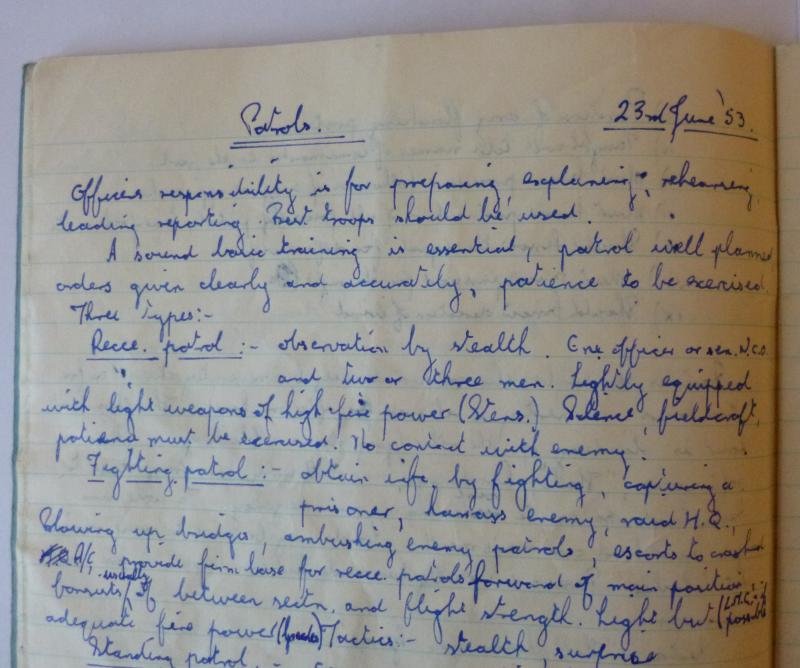 Patrols. 23rd June '53.
Officers responsibility is for preparing, explaining, rehearsing,
leading reporting. Best troops should be used.
A sound basic training is essential, patrol well planned
orders given clearly and accurately, patience to be exercised.
Three Types:-
Recce. patrol :- observation by stealth. One officer or sen. N.C.O
and two or three men. Lightly equipped
with light weapons of high fire power (Stens.) Silence, fieldcraft,
patience must be exercised. No contact with enemy.
Fighting patrol :- obtain info. by fighting, capturing a
prisoner, harrass enemy, raid H.Q.,
blowing up bridges, ambushing enemy patrols, escorts to crashed
A/C, provide firm base for recce. patrols forward of main position
usually
of between sectn. and flight strength. Light but (L.M.G. if possible
adequate fire power Tactics:- stealth, surprise
Standing patrol. -